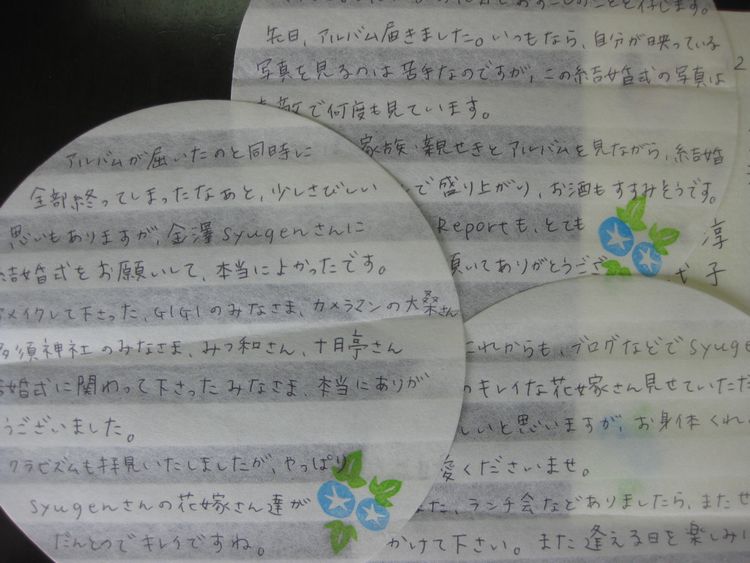 先日、アルバム届きました。いつもなら、自分が映っている
写真を見るのは苦手なのですが、この結婚式の写真は
素敵で何度も見ています。
家族・親せきとアルバムを見ながら、結婚
で盛り上がり、お酒もすすみそうです。
Reportも、とても
頂いてありがとうござ
淳
子
2
アルバムが届いたのと同時に
全部終ってしまったなあと、少しさびしい
思いもありますが、金澤syugenさんに
結婚式をお願いして、本当によかったです。
メイクして下さった、GIGIのみなさま、カメラマンの大桑さん
多須神社のみなさま、みつ和さん、十月亭さん
結婚式に関わって下さったみなさま、本当にありが
うございました。
クラビズムも拝見いたしましたが、やっぱり
syugenさんの花嫁さん達が
だんとつでキレイですね。
これからも、ブログなどでsyuge
のキレイな花嫁さん見せていただ
しいと思いますが、お身体くれい
愛くださいませ。
また、ランチ会などありましたら、またせ
かけて下さい。また逢える日を楽しみに